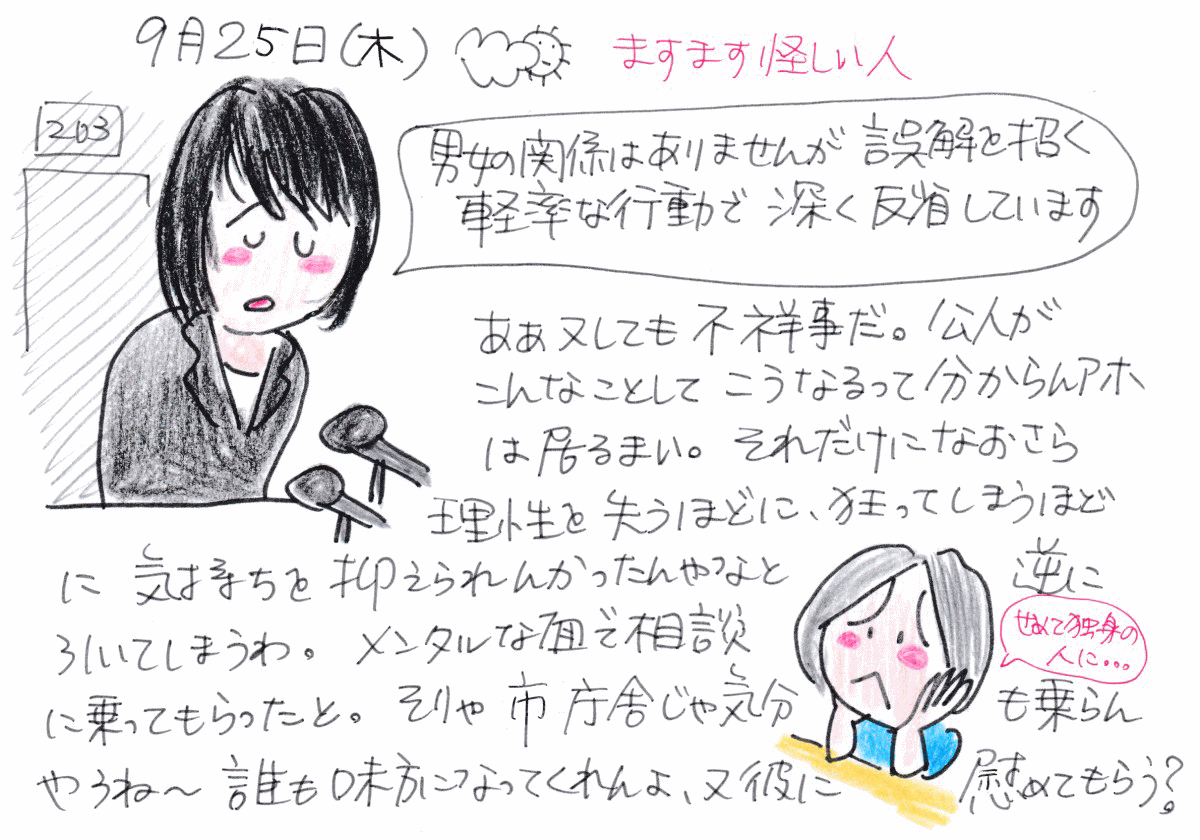 9月25日(木)
ますます怪しい人
203
男女の関係はありませんが 誤解を招く
軽率な行動で 深く反省しています
ああ又しても不祥事だ。公人が
こんなことして こうなるって分からんアホ
は居るまい。それだけになおさら
理性を失うほどに、狂ってしまうほど
に 気持ちを抑えられんかったんやなよと 逆に
引いてしまうわ。メンタルな面で相談
せめて独身の
人に…
に乗ってもらったと。そりゃ市庁舎じゃ気分も乗らん
やろね〜 誰も味方になってくれんよ、又彼に慰めてもらう?